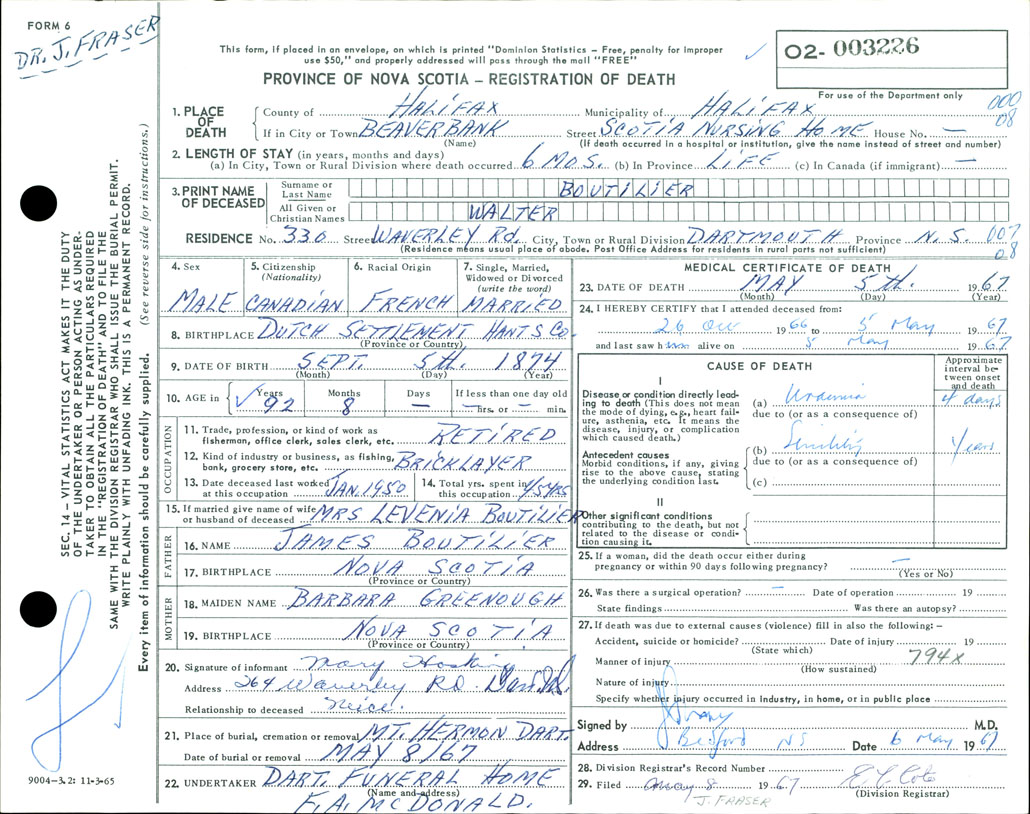 FORM 6
DR. J. FRASER
This form, if placed in an envelope, on which is printed "Dominion Statistics – Free, penalty for improper
use $50," and properly addressed will pass through the mail "FREE"
02- 003226
PROVINCE OF NOVA SCOTIA – REGISTRATION OF DEATH
For use of the Department only
000
08
1. PLACE OF DEATH
County of HALIFAX Municipality of HALIFAX
If in City or Town BEAVERBANK Street SCOTIA NURSING HOME House No. —
(Name) (If death occurred in a hospital or institution, give the name instead of street and number)
2. LENGTH OF STAY (in years, months and days)
(a) In City, Town or Rural Division where death occurred 6 MOS. (b) In Province LIFE (c) In Canada (if immigrant) —
3. PRINT NAME OF DECEASED
Surname or Last Name BOUTILIER
All Given or Christian Names WALTER
RESIDENCE No. 330 Street WAVERLEY Rd. City, Town or Rural Division DARTMOUTH Province N.S. 007
08
(Residence means usual place of abode. Post Office Address for residents in rural parts not sufficient)
4. Sex MALE
5. Citizenship (Nationality) CANADIAN
6. Racial Origin FRENCH
7. Single, Married, Widowed or Divorced (write the word) MARRIED
8. BIRTHPLACE DUTCH SETTLEMENT HANTS Co.
(Province or Country)
9. DATE OF BIRTH SEPT. 5th. 1874
(Month) (Day) (Year)
10. AGE in Years 92 Months 8 Days — If less than one day old — hrs. or — min.
OCCUPATION
11. Trade, profession, or kind of work as fisherman, office clerk, sales clerk, etc. RETIRED
12. Kind of industry or business, as fishing, bank, grocery store, etc. BRICKLAYER
13. Date deceased last worked at this occupation JAN. 1950
14. Total yrs. spent in this occupation 45 YRS
15. If married give name of wife or husband of deceased MRS LEVENIA BOUTILIER
FATHER
16. NAME JAMES BOUTILIER
17. BIRTHPLACE NOVA SCOTIA
(Province or Country)
MOTHER
18. MAIDEN NAME BARBARA GREENOUGH
19. BIRTHPLACE NOVA SCOTIA
(Province or Country)
20. Signature of informant Mary Hosking
Address 264 Waverley RD Dart. N.S.
Relationship to deceased Neice
21. Place of burial, cremation or removal MT. HERMON DART.
Date of burial or removal MAY 8/67
22. UNDERTAKER DART. FUNERAL HOME
(Name and address)
F.A. McDONALD.
MEDICAL CERTIFICATE OF DEATH
23. DATE OF DEATH MAY 5th. 1967
(Month) (Day) (Year)
24. I HEREBY CERTIFY that I attended deceased from:
26 1966 to 5 May 1967
and last saw h alive on 5 May 1967
CAUSE OF DEATH
Approximate interval between onset and death
I
Disease or condition directly leading to death (This does not mean the mode of dying, e.g., heart failure, asthenia, etc. It means the disease, injury, or complication which caused death.)
(a) Uraemia 4 days
due to (or as a consequence of)
Antecedent causes
Morbid conditions, if any, giving rise to the above cause, stating the underlying condition last.
(b) Senility Years
due to (or as a consequence of)
(c)
II
Other significant conditions contributing to the death, but not related to the disease or condition causing it.
25. If a woman, did the death occur either during pregnancy or within 90 days following pregnancy? —
(Yes or No)
26. Was there a surgical operation? – Date of operation 19
State findings Was there an autopsy?
27. If death was due to external causes (violence) fill in also the following: –
Accident, suicide or homicide? Date of injury 19
(State which)
Manner of injury 794x
(How sustained)
Nature of injury
Specify whether injury occurred in Industry, in home, or in public place
Signed by M.D.
Address Bedford NS Date 6 May 1967
28. Division Registrar's Record Number
29. Filed May 8 1967
(Division Registrar)
J. FRASER
SEC. 14 – VITAL STATISTICS ACT MAKES IT THE DUTY
OF THE UNDERTAKER OR PERSON ACTING AS UNDER-
TAKER TO OBTAIN ALL THE PARTICULARS REQUIRED
IN THE "REGISTRATION OF DEATH" AND TO FILE THE
SAME WITH THE DIVISION REGISTRAR WHO SHALL ISSUE THE BURIAL PERMIT.
WRITE PLAINLY WITH UNFADING INK. THIS IS A PERMANENT RECORD.
Every item of information should be carefully supplied. (See reverse side for instructions.)
9004-3.2: 11-3-65